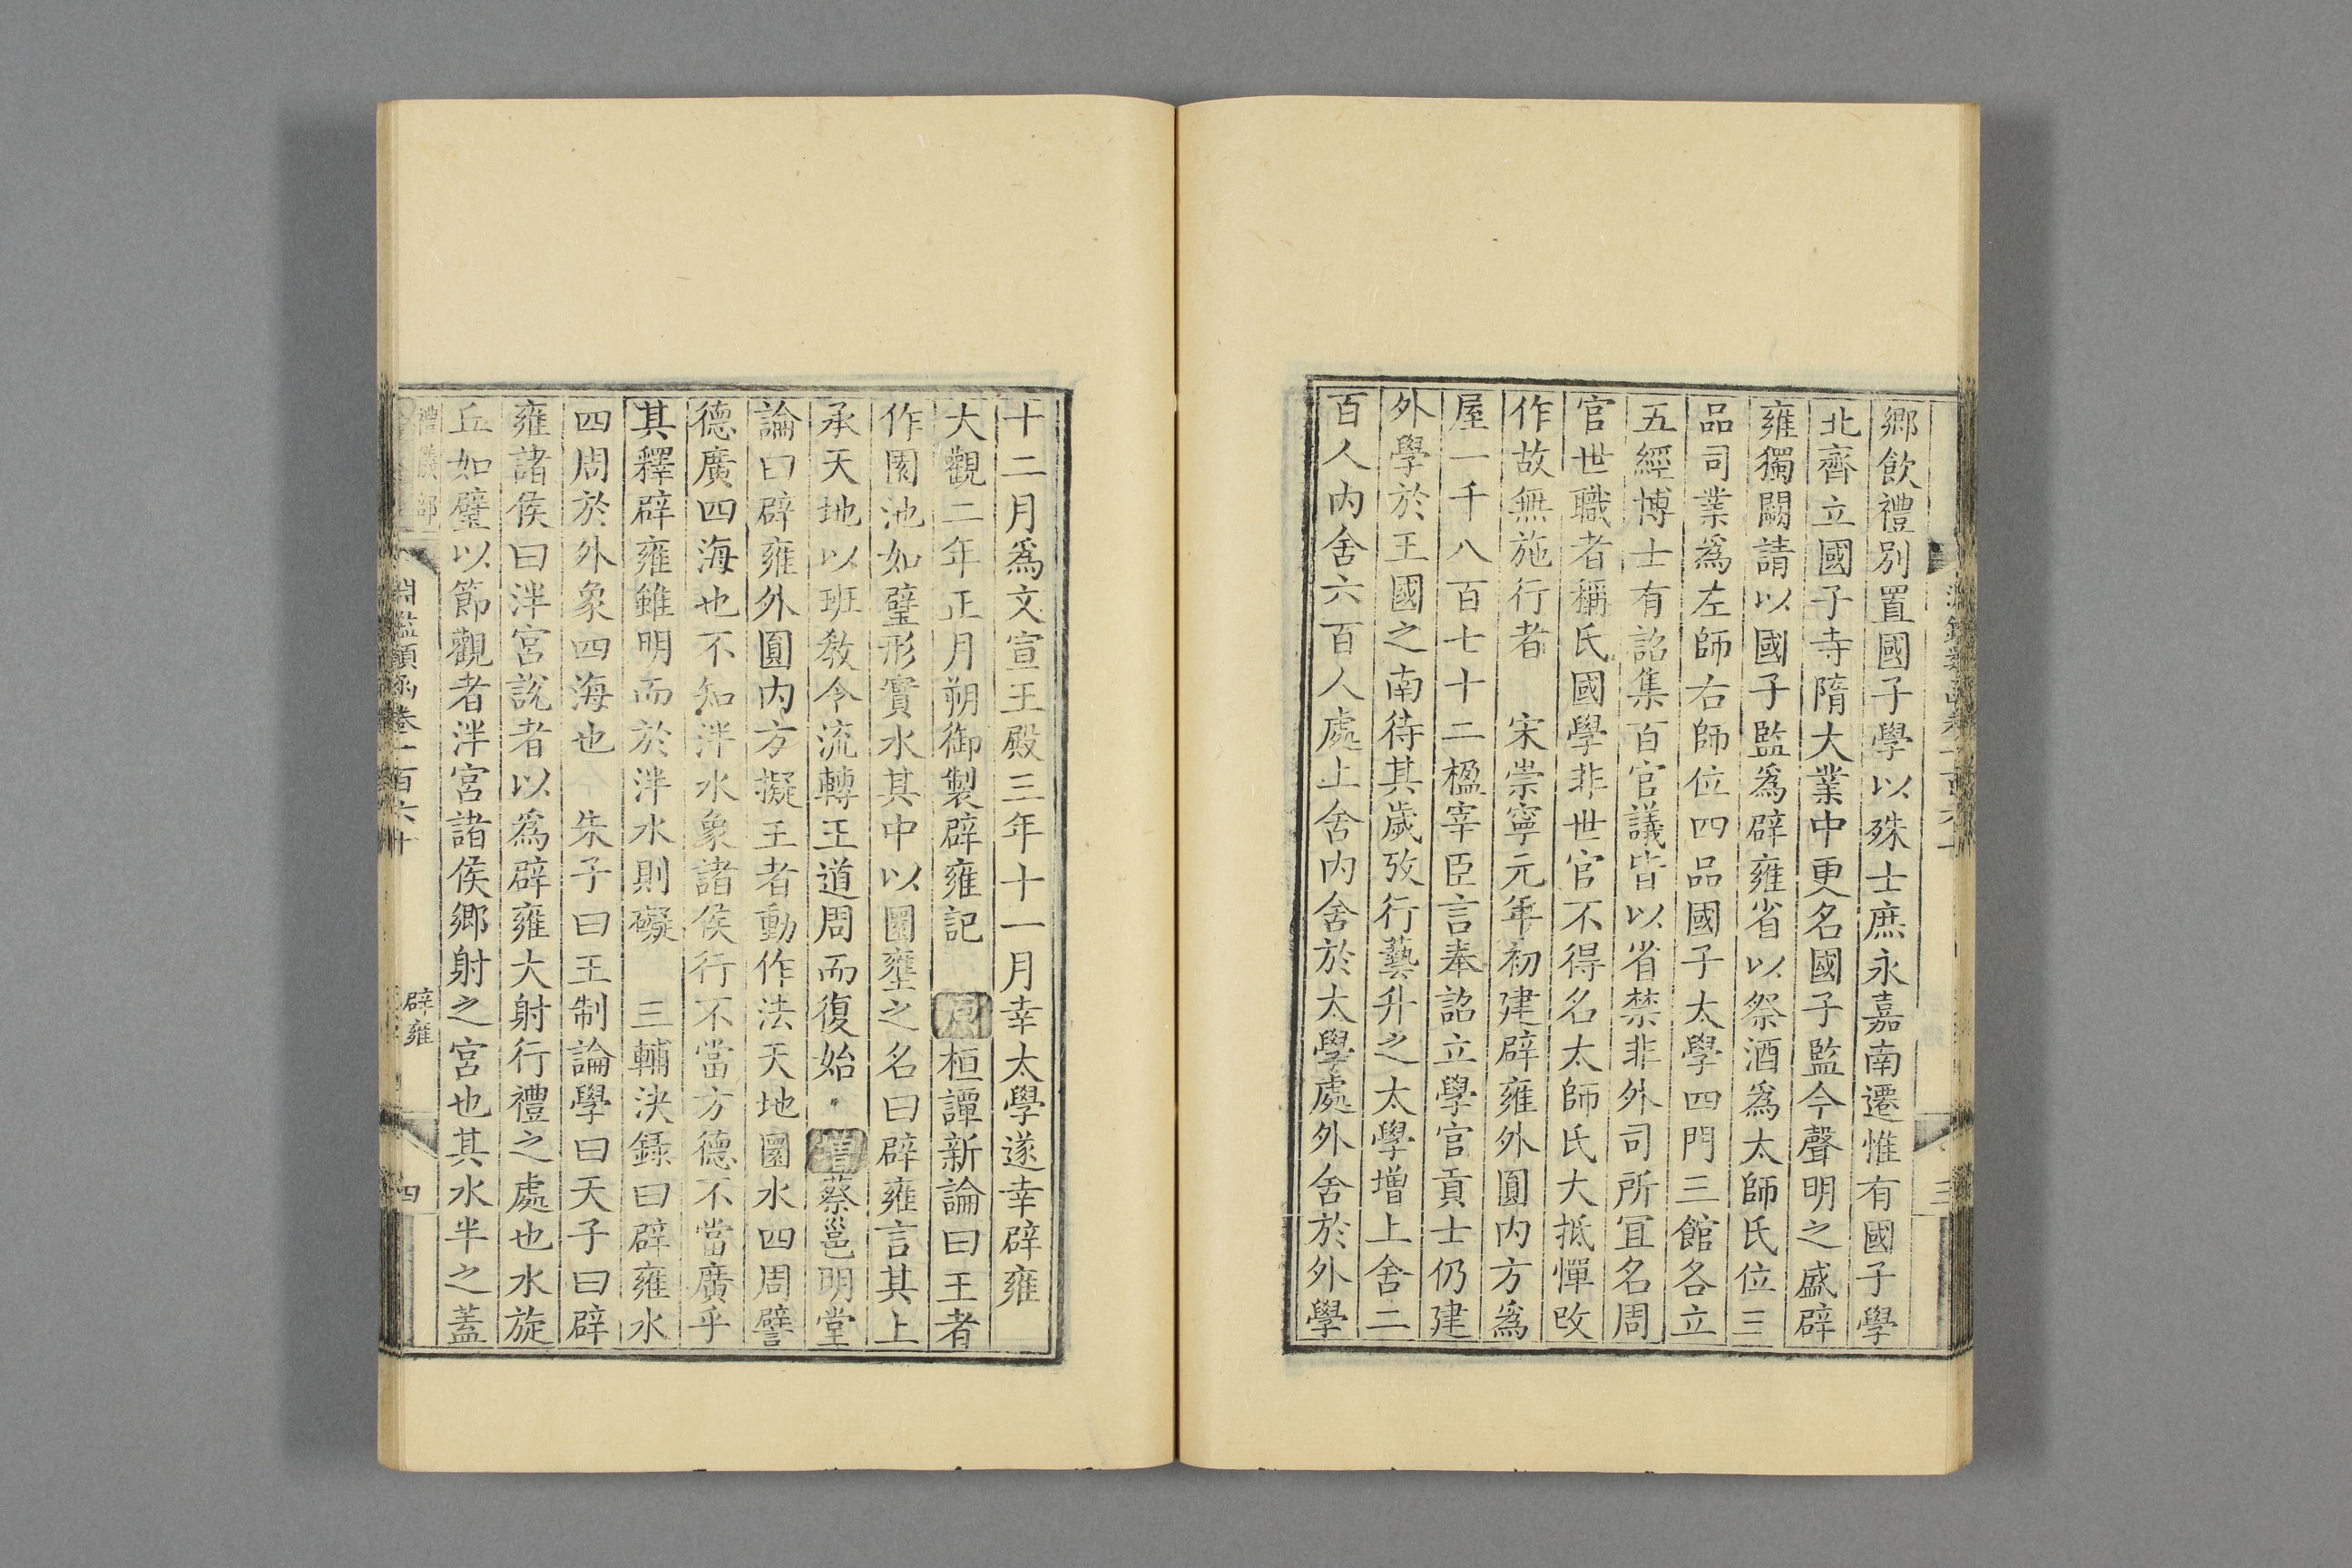 鄉飲禮別置國子學以殊士庶永嘉南遷惟有國子學
北齊立國子寺隋大業中更名國子監今聲明之盛辟
雍獨闕請以國子監爲辟雍省以祭酒爲太師氏位三
品司業爲左師右師位四品國子太學四門三館各立
五經博士有詔集百官議皆以省禁非外司所宜名周
官世職者稱氏國學非世官不得名太師氏大抵憚改
作故無施行者　宋崇寧元年初建辟雍外圓内方爲
屋一千八百七十二楹宰臣言奉詔立學官貢士仍建
外學於王國之南待其歲攷行藝升之太學增上舍二
百人内舍六百人處上舍内舍於太學處外舍於外學
三
十二月爲文宣王殿三年十一月幸太學遂幸辟雍
大觀二年正月朔御製辟雍記　原桓譚新論曰王者
作圓池如璧形實水其中以圜壅之名曰辟雍言其上
承天地以班敎令流轉王道周而復始　增蔡邕明堂
論曰辟雍外圓内方擬王者動作法天地圜水四周譬
德廣四海也不知泮水象諸侯行不當方德不當廣乎
其釋辟雍雖明而於泮水則礙　三輔決錄曰辟雍水
四周於外象四海也　朱子曰王制論學曰天子曰辟
雍諸侯曰泮宮說者以爲辟雍大射行禮之處也水旋
丘如璧以節觀者泮宮諸侯鄉射之宮也其水半之蓋
禮儀部
淵鑑類函卷一百六十
辟雍
四